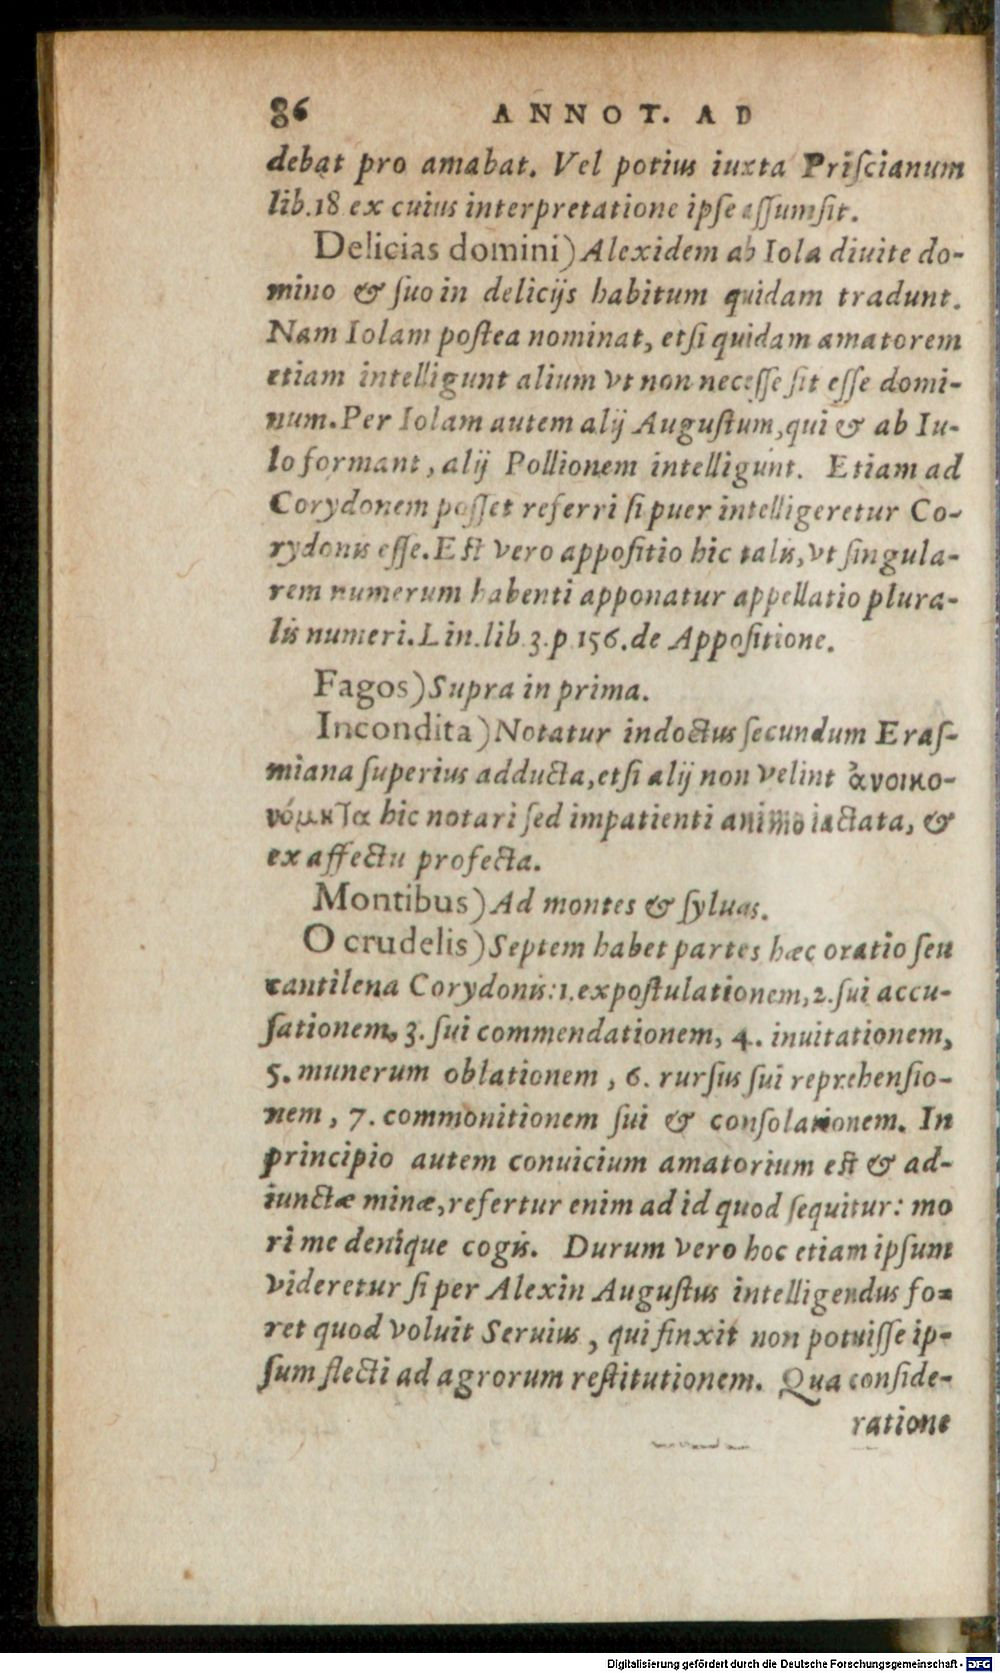 86 ANNOT. AD
debat pro amabat. Vel potius iuxta Priſcianum
lib.18 ex cuius interpretatione ipſe aſſumſit.
Delicias domini) Alexidem ab Iola diuite do-
mino & ſuo in delicijs habitum quidam tradunt.
Nam Iolam poſtea nominat, etſi quidam amatorem
etiam intelligunt alium vt non neceſſe ſit eſſe domi-
num. Per Iolam autem alij Auguſtum, qui & ab Iu-
lo formant, alij Pollionem intelligunt. Etiam ad
Corydonem poſſet referri ſi puer intelligeretur Co-
rydonis eſſe. Eſt vero appoſitio hic talis, vt ſingula-
rem numerum habenti apponatur appellatio plura-
lis numeri. Lin. lib 3. p 156. de Appoſitione.
Fagos) Supra in prima.
Incondita) Notatur indoctus ſecundum Eraſ-
miana ſuperius adducta, etſi alij non velint ἀνοικο-
νόμηTα hic notari ſed impatienti animo iactata, &
ex affectu profecta.
Montibus) Ad montes & ſyluas.
O crudelis) Septem habet partes hæc oratio ſeu
cantilena Corydonis: 1. expoſtulationem, 2. ſui accu-
ſationem, 3. ſui commendationem, 4. inuitationem,
5. munerum oblationem, 6. rurſus ſui reprehenſio-
nem, 7. commonitionem ſui & conſolationem. In
principio autem conuicium amatorium eſt & ad-
iunctæ minæ, refertur enim ad id quod ſequitur: mo
ri me denique cogis. Durum vero hoc etiam ipſum
videretur ſi per Alexin Auguſtus intelligendus fo-
ret quod voluit Seruius, qui finxit non potuiſſe ip-
ſum flecti ad agrorum reſtitutionem. Qua conſide-
ratione
Digitalisierung gefördert durch die Deutsche Forschungsgemeinschaft - DFG